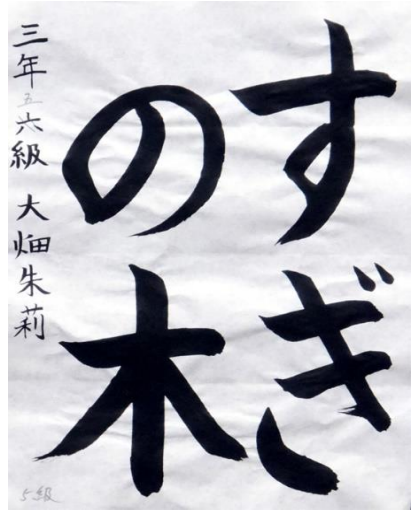 すぎ
の木
三年五六級 大畑朱莉
5級